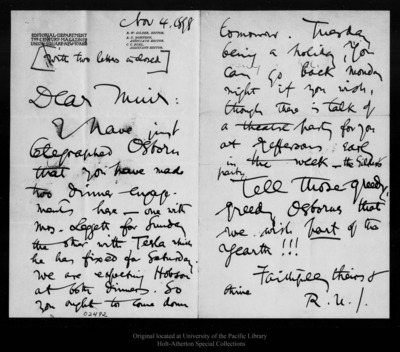 Nov 4, 1898
EDITORIAL DEPARTMENT
THE CENTURY MAGAZINE
UNION SQUARE NEW YORK
R. W. GILDER, EDITOR.
R. U. JOHNSON,
ASSOCIATE EDITOR.
C. C. BUEL,
ASSISTANT EDITOR.
[With two letters enclosed]
Dear Muir:
I have just
telegraphed Osborn
that you have made
two dinner engage-
ments here — one with
Mrs. Leggett for Sunday
the other with Tesla which
he has fixed for Saturday.
We are expecting Hobson
at both dinners. So
you ought to come down
02492
tomorrow. Tuesday
being a holiday, you
can go back Monday
night if you wish,
though there is talk of
a theatre party for you
at Jefferson's Earl
in the week — the Gilders
party
Tell those greedy,
greedy Osborns that
we wish part of the
yearth !!!
Faithfully theirs &
thine
R. U. J.
Original located at University of the Pacific Library
Holt-Atherton Special Collections